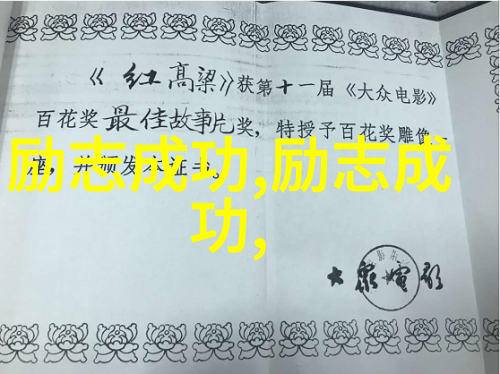 《红高粱》获第十一届《大众电影》
百花奖最佳故事片奖，特授予百花奖雕像一
座，并颁发本证书。
励志成功,励志成
功,
大众电影